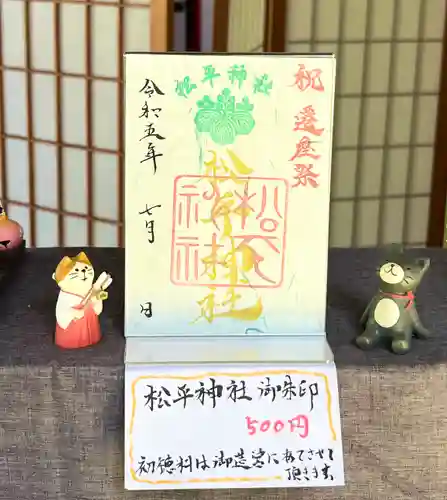 祝 遷座祭
松平神社
松平神社
松平神社
令和五年 七月 日
松平神社 御朱印
500円
初穂料は御造営にあてさせて
頂きます